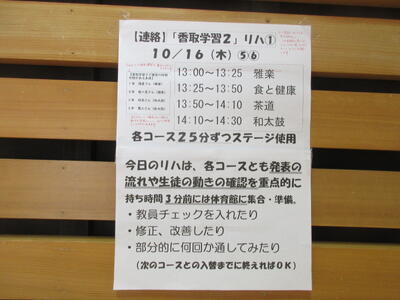 【連絡】「香取学習２」リハ①
１０／１６（木）⑤⑥
13:00～13:25 雅楽
13:25～13:50 食と健康
13:50～14:10 茶道
14:10～14:30 和太鼓
各コース２５分ずつステージ使用
今日のリハは、各コースとも発表の
流れや生徒の動きの確認を重点的に
持ち時間３分前には体育館に集合・準備。
・教員チェックを入れたり
・修正、改善したり
・部分的に何回か通してみたり
（次のコースとの入替までに終えればＯＫ）